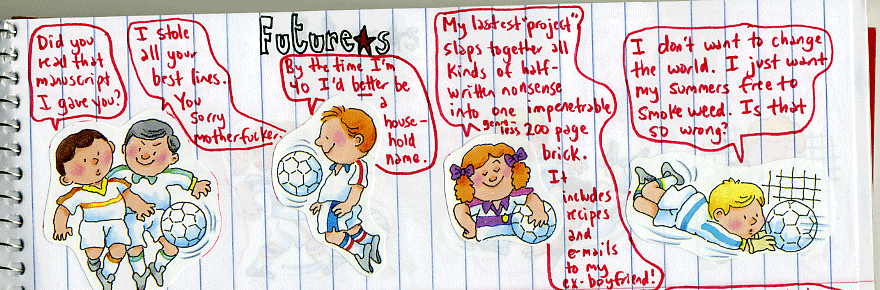 Future★s
Did you
read that
manuscript
I gave you?
I stole
all your
best lines.
You
sorry
motherfucker.
By the time I'm
40 I'd better be
a
house-
hold
name.
My lastest "project"
slaps together all
kinds of half-
written nonsense
into one impenetrable
genre-
less 200 page
brick.
It
includes
recipes
and
e-mails
to my
ex-boyfriend!
I don't want to change
the world. I just want
my summers free to
smoke weed. Is that
so wrong?